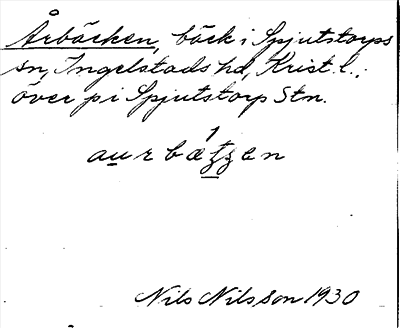 Årbäcken, bäck i Spjutstorps
sn, Ingelstads hd, Krist. l.;
över p i Spjutstorp Stn.
aurbætzen
Nils Nilsson 1930